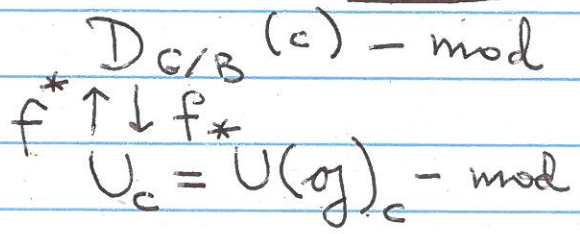 D_{G/B}(c) - mod
f^* ↑ ↓ f_*
U_c = U(𝔤)_c - mod